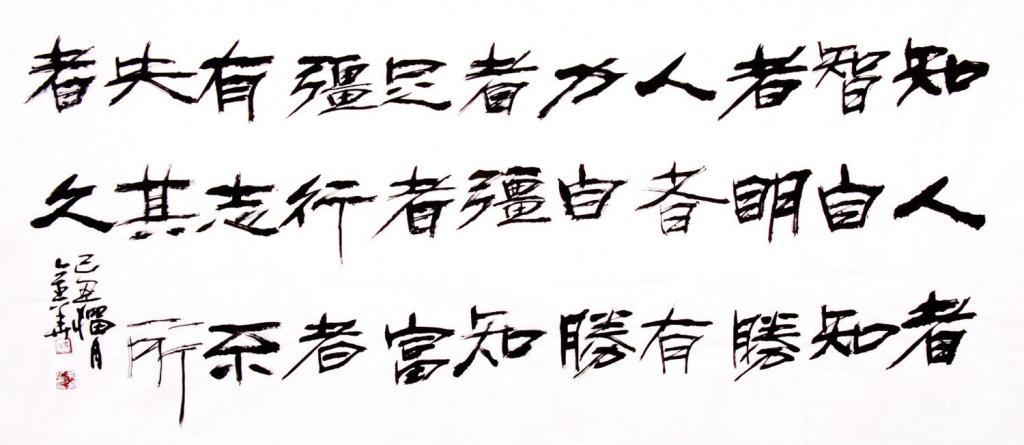 知人者
智自知
者明勝
人者有
力自勝
者彊知
足者富
彊行者
有志不
失其所
者久
己丑榴月